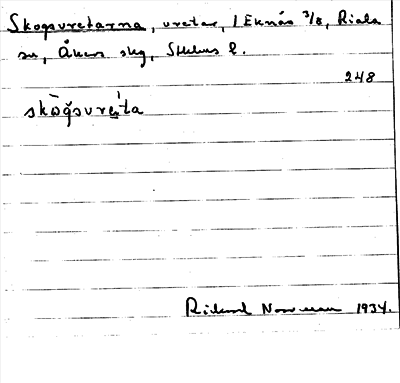 Skogsvretarna, vretar, l Eknäs 3/8, Riala
sn, Åkers skg, Sthlms l.
248
skògsvre̲ta
Rickard Norrman 1934.